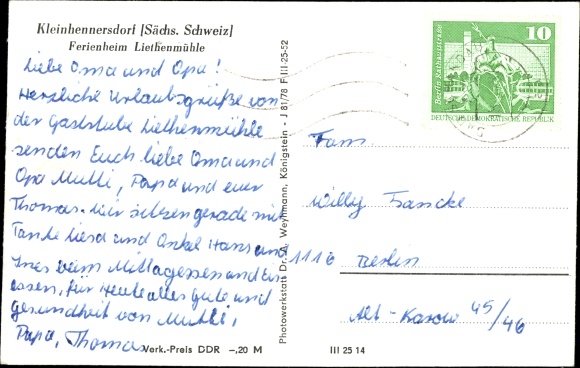 Kleinhennersdorf [Sächs. Schweiz]
Ferienheim Liethenmühle
Liebe Oma und Opa!
Herzliche Urlaubsgrüße von
der Gaststube Liethenmühle
senden Euch liebe Oma und
Opa Mutti, Papa und euer
Thomas. Wir sitzen gerade mit
Tante Liesa und Onkel Hans und
Ines beim Mittagessen and Eis
essen, für Heute alles gute und
gesundheit von Mutti,
Papa, Thomas
Verk.-Preis DDR -,20 M
III 25 14
Photowerkstatt Dr. A. Weyhmann, Königstein - J 81/78 F III-25-52
Berlin Rathausstraße
10
DEUTSCHE DEMOKRATISCHE REPUBLIK
Fam.
Willy Francke
1116 Berlin
Alt-Karow 45/46